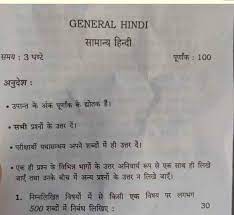 GENERAL HINDI
सामान्य हिन्दी
समय : 3 घण्टे पूर्णांक : 100
अनुदेश :
• उपान्त के अंक पूर्णांक के द्योतक हैं।
• सभी प्रश्नों के उत्तर दें।
• परीक्षार्थी यथासम्भव अपने शब्दों में ही उत्तर दें।
• एक ही प्रश्न के विभिन्न भागों के उत्तर अनिवार्य रूप से एक साथ ही लिखे
जाएँ तथा उनके बीच में अन्य प्रश्नों के उत्तर न लिखे जाएँ।
1. निम्नलिखित विषयों में से किसी एक विषय पर लगभग
500 शब्दों में निबंध लिखिए : 30